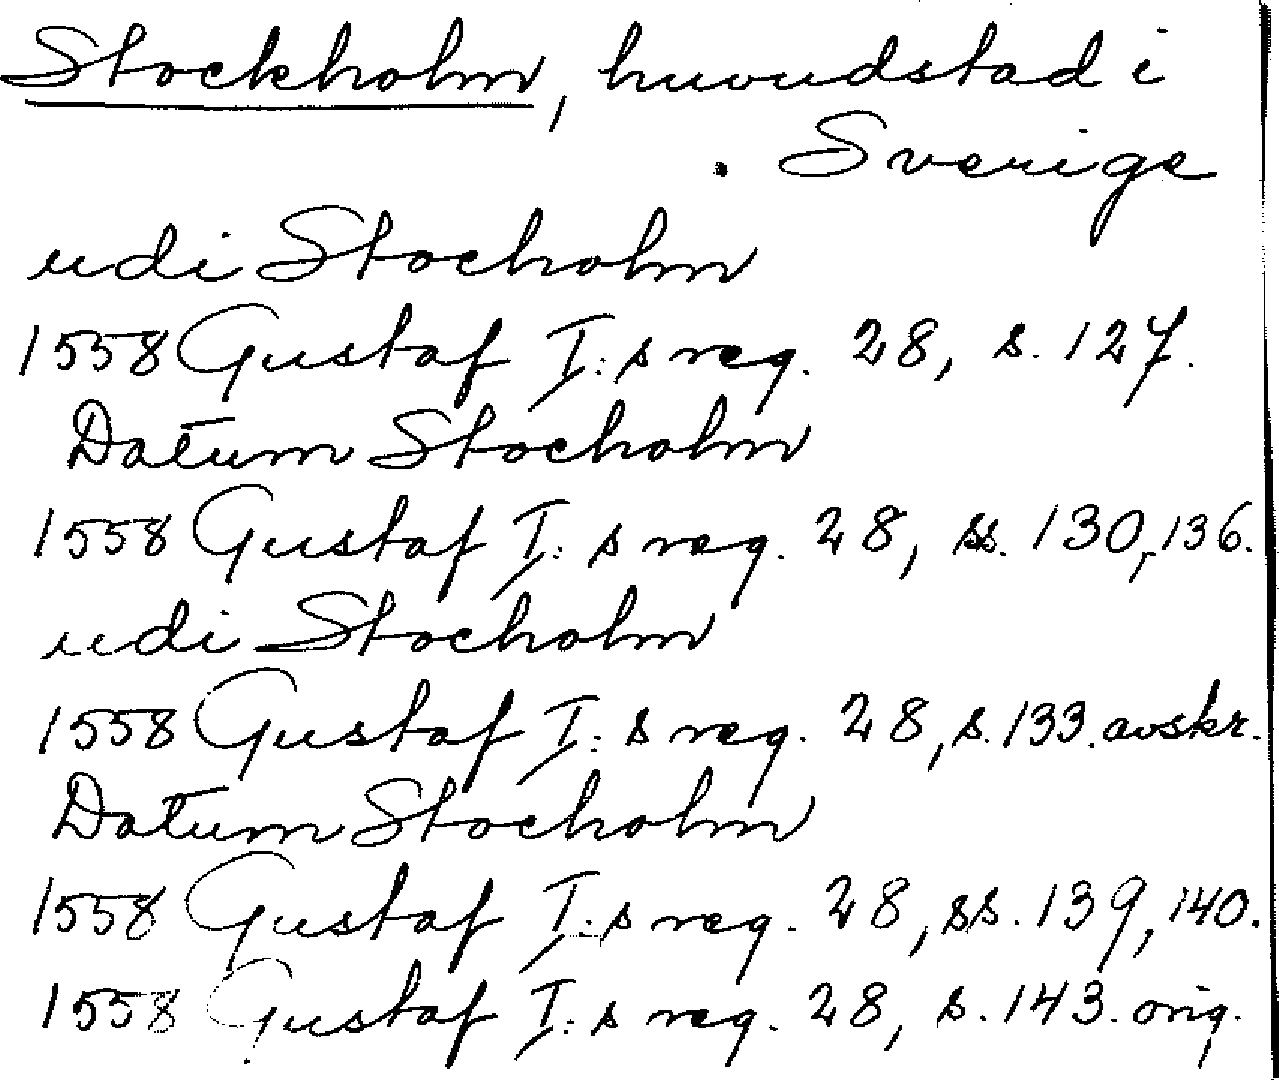 Stockholm, huvudstad i
Sverige
udi Stocholm
1558 Gustaf I:s reg. 28, s. 127.
Datum Stocholm
1558 Gustaf I:s reg. 28, ss. 130, 136.
udi Stocholm
1558 Gustaf I:s reg. 28, s. 133. avskr.
Datum Stocholm
1558 Gustaf I:s reg. 28, ss. 139, 140.
1558 Gustaf I:s reg. 28, s. 143. orig.